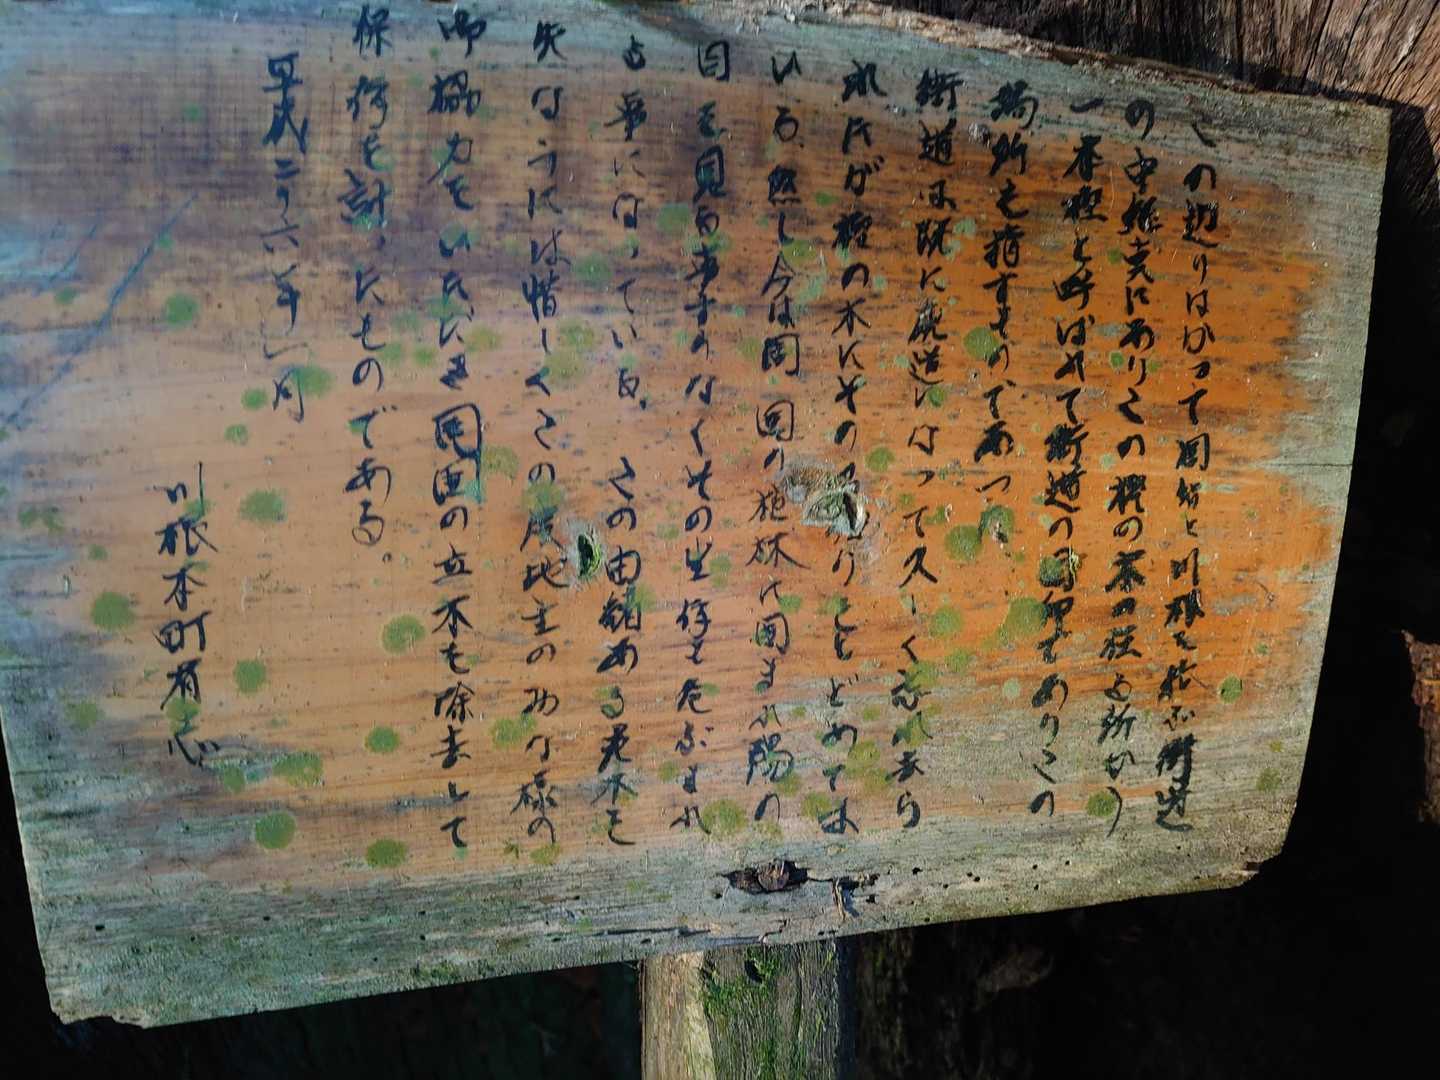 この辺りはかつて周智と川根を結ぶ街道
の中継点にありこの樫の茶の枝る所から
一本樫と呼ばれて街道の目印でありこの
場所を指すものであつ
街道は既に廃道になって久しく忘れ去ら
れたが樫の木にその りをとどめてお
いる。然し今は周囲の植林に囲まれ陽の
目を見る事すらなくその生存も危ぶまれ
る事になっている。この由緒ある老木を
失なうには惜しくこの度地主のみな様の
御協力をいただき周囲の立木を除去して
保存を計ったものである。
平成二十六年一月
川根本町有志